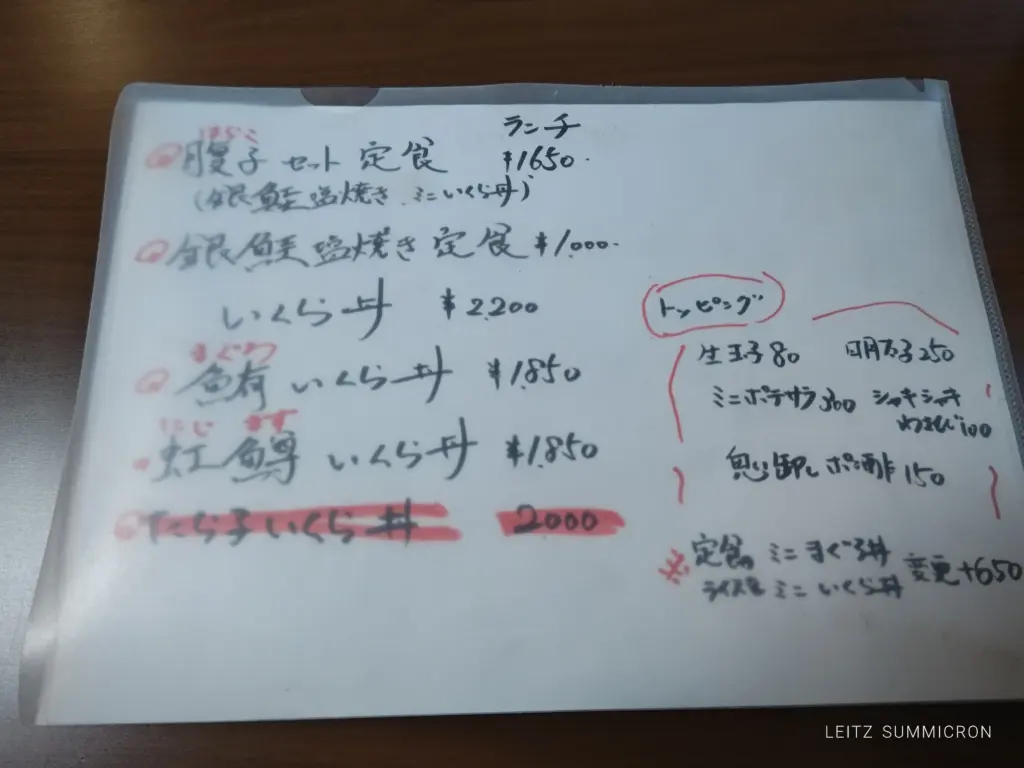 ランチ
はらこ
腹子セット定食 ¥1650.
(銀鮭塩焼き ミニいくら丼)
銀鮭塩焼き定食 ¥1,000.
いくら丼 ¥2,200
まぐろ
鮪いくら丼 ¥1,850
にじ ます
虹鱒いくら丼 ¥1,850
たら子いくら丼 2000
トッピング
生玉子80 明太子250
ミニポテサラ300 シャキシャキ
わさび100
鬼卸しポン酢150
※定食の ミニまぐろ丼 変更+650
ライスを ミニいくら丼
LEITZ SUMMICRON